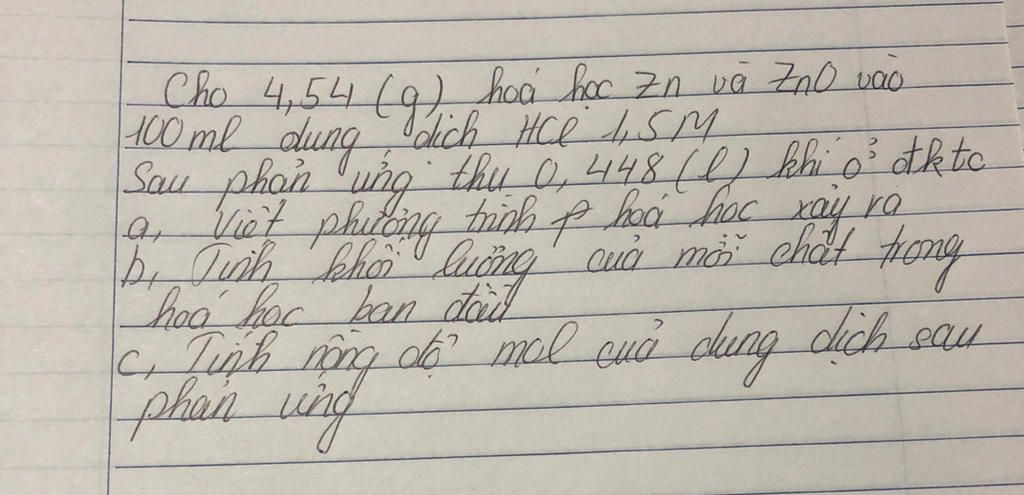 Cho 4,54 (g) hoá học Zn và ZnO vào
100ml dung dịch HCl 1,5M
Sau phản ứng thu 0,448 (l) khí ở đktc
a, Viết phương trình hoá học xảy ra
b, Tính khối lượng của mỗi chất trong
hoá học ban đầu
c, Tính nồng độ mol của dung dịch sau
phản ứng